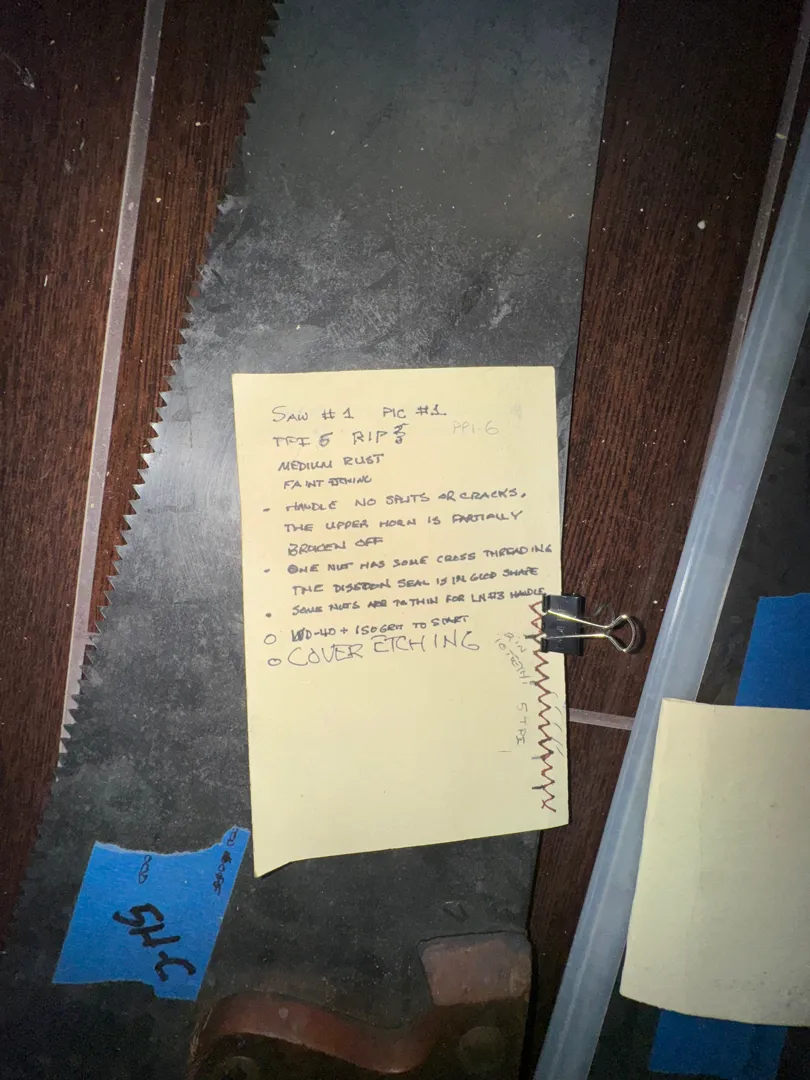 SAW #1 PIC #1
TPI 5 RIP PPI-6
MEDIUM RUST
FAINT ETCHING
- HANDLE NO SPLITS OR CRACKS.
THE UPPER HORN IS PARTIALLY
BROKEN OFF
- ONE NUT HAS SOME CROSS THREADING
THE DISSTON SEAL IS IN GOOD SHAPE
• SOME NUTS ARE TO THIN FOR LN#3 HANDLE
O WD-40 + 150 GRIT TO START
O COVER ETCHING
IN
10 TEETH
5 TPI